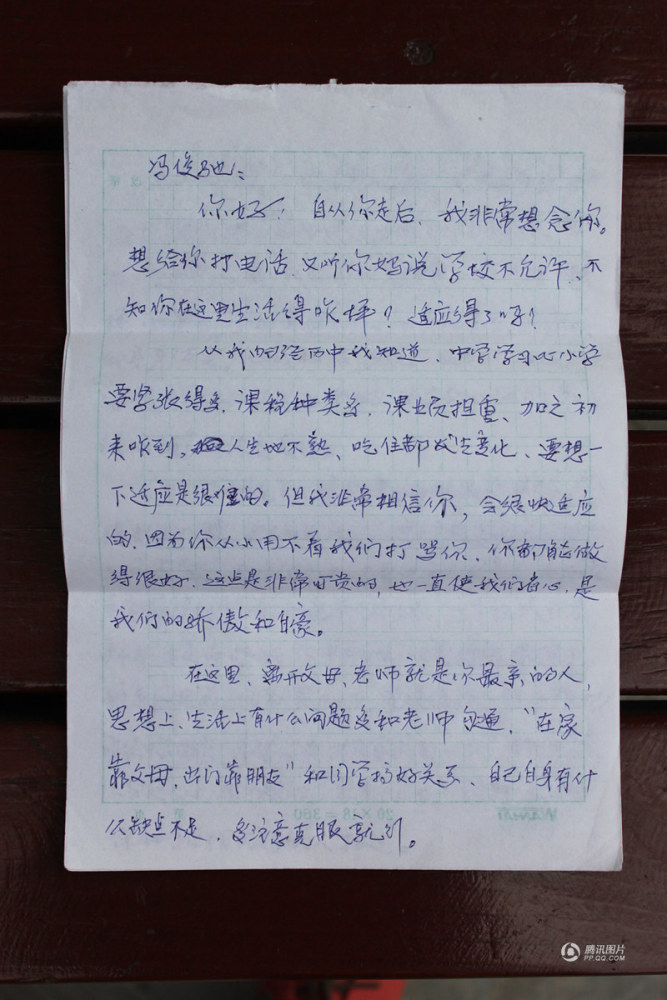 冯俊驰:
你好!自从你走后,我非常想念你。
想给你打电话,又听你妈说学校不允许,不
知你在这里生活得咋样?适应得了吗?
从我的经历中我知道,中学学习比小学
要紧张得多,课程种类多,课业负担重,加之初
来咋到,人生地不熟、吃住都发生变化、要想一
下适应是很难的。但我非常相信你,会很快适应
的,因为你从小用不着我们打骂你,你都能做
得很好,这点是非常可贵的,也一直使我们省心,是
我们的骄傲和自豪。
在这里、离开父母、老师就是你最亲的人,
思想上、生活上有什么问题多和老师沟通,“在家
靠父母,出门靠朋友”和同学搞好关系、自己自身有什
么缺点不足,多注意克服就行。
20×18=360
腾讯图片
PP.QQ.COM